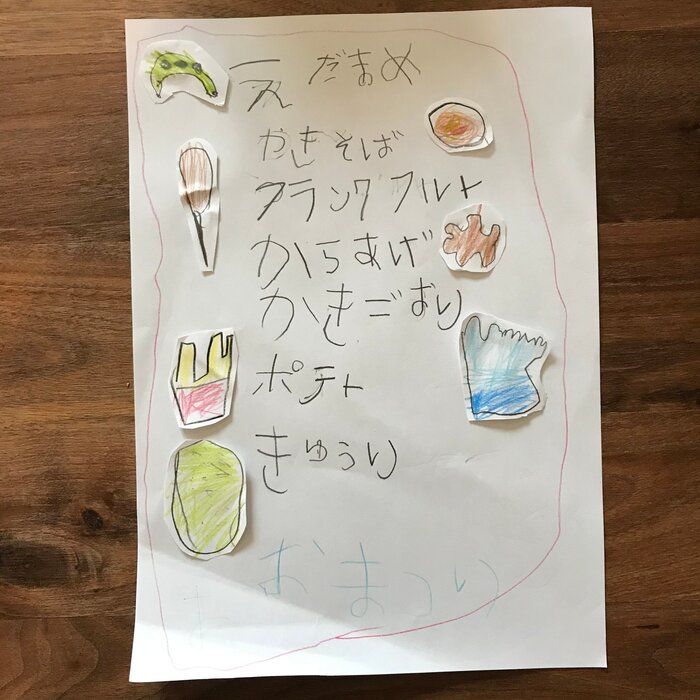 えだまめ
やきそば
フランクフルト
からあげ
かきごおり
ポテト
きゅうり
おまつり